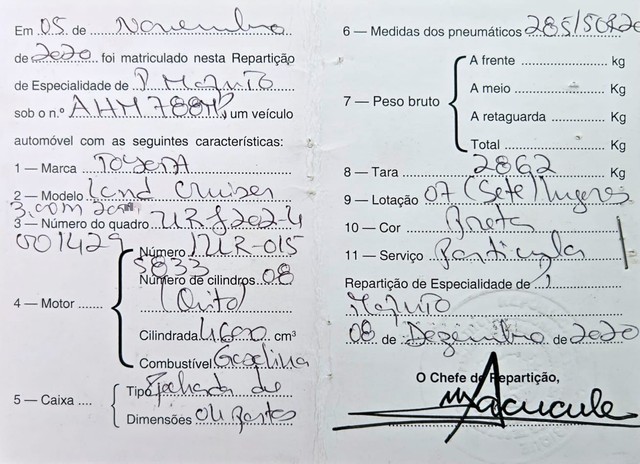 Em 05 de Novembro
de 2020 foi matriculado nesta Repartição
de Especialidade de P. Maputo
sob o n.º AHM 788 MP, um veículo
automóvel com as seguintes características:
1 — Marca TOYOTA
2 — Modelo Land Cruiser
3 — Número do quadro URJ202-4
001429
4 — Motor
Número 1UR-015
5833
Número de cilindros 08
(Oito)
Cilindrada 4600 cm³
Combustível Gasolina
5 — Caixa
Tipo Fechada de
Dimensões 04 portas
6 — Medidas dos pneumáticos 285/50R20
7 — Peso bruto
A frente Kg
A meio Kg
A retaguarda Kg
Total Kg
8 — Tara 2862 Kg
9 — Lotação 07 (Sete) lugares
10 — Cor Preta
11 — Serviço Particular
Repartição de Especialidade de
Maputo
08 de Dezembro de 2020
O Chefe de Repartição,